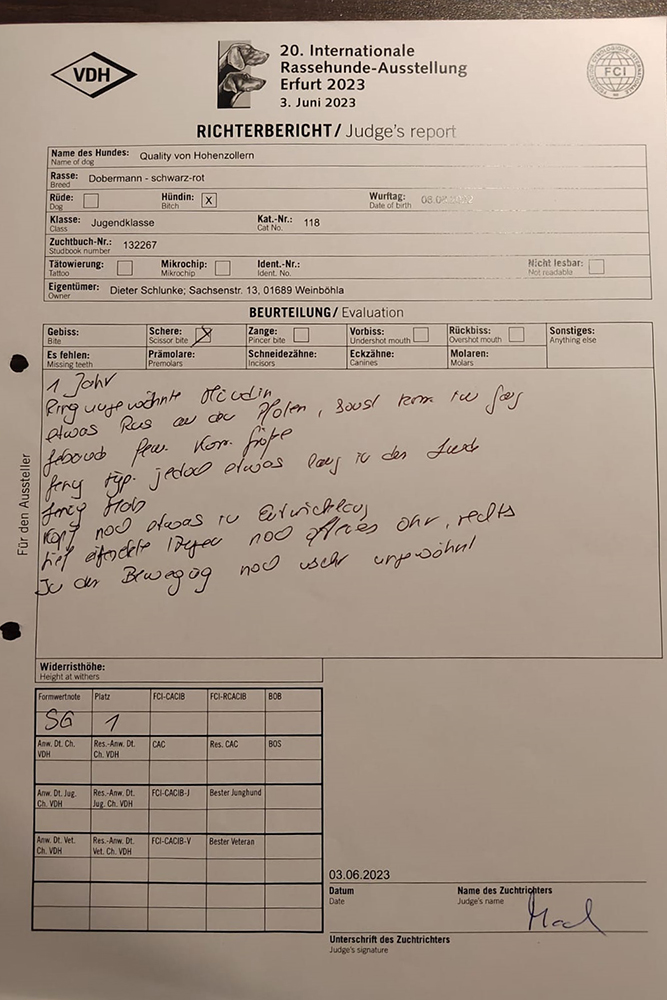 VDH
20. Internationale
Rassehunde-Ausstellung
Erfurt 2023
3. Juni 2023
FCI
RICHTERBERICHT / Judge's report
Name des Hundes: Quality von Hohenzollern
Name of dog
Rasse: Dobermann - schwarz-rot
Breed
Rüde: Hündin: X Wurftag:
Dog Bitch Date of birth
Klasse: Jugendklasse Kat.-Nr.: 118
Class Cat No.
Zuchtbuch-Nr.: 132267
Studbook number
Tätowierung: Mikrochip: Ident.-Nr.: Nicht lesbar:
Tattoo Mikrochip Ident. No. Not readable
Eigentümer: Dieter Schlunke; Sachsenstr. 13, 01689 Weinböhla
Owner
BEURTEILUNG / Evaluation
Gebiss: Schere: X Zange: Vorbiss: Rückbiss: Sonstiges:
Bite Scissor bite Pincer bite Undershot mouth Overshot mouth Anything else
Es fehlen: Prämolare: Schneidezähne: Eckzähne: Molaren:
Missing teeth Premolars Incisors Canines Molars
Für den Aussteller
1 Jahr
Ring ungewöhnte Hündin
etwas an den Pfoten, sonst im
Größe
jedoch etwas lang in der
Kopf noch etwas in Entwicklung
tief Augen noch Ohr, rechts
In der Bewegung noch sehr ungewöhnt
Widerristhöhe:
Height at withers
Formwertnote Platz FCI-CACIB FCI-RCACIB BOB
SG 1
Anw. Dt. Ch. VDH Res.-Anw. Dt. Ch. VDH CAC Res. CAC BOS
Anw. Dt. Jug. Ch. VDH Res.-Anw. Dt. Jug. Ch. VDH FCI-CACIB-J Bester Junghund
Anw. Dt. Vet. Ch. VDH Res.-Anw. Dt. Vet. Ch. VDH FCI-CACIB-V Bester Veteran
03.06.2023
Datum Name des Zuchtrichters
Date Judge's name
Unterschrift des Zuchtrichters
Judge's signature